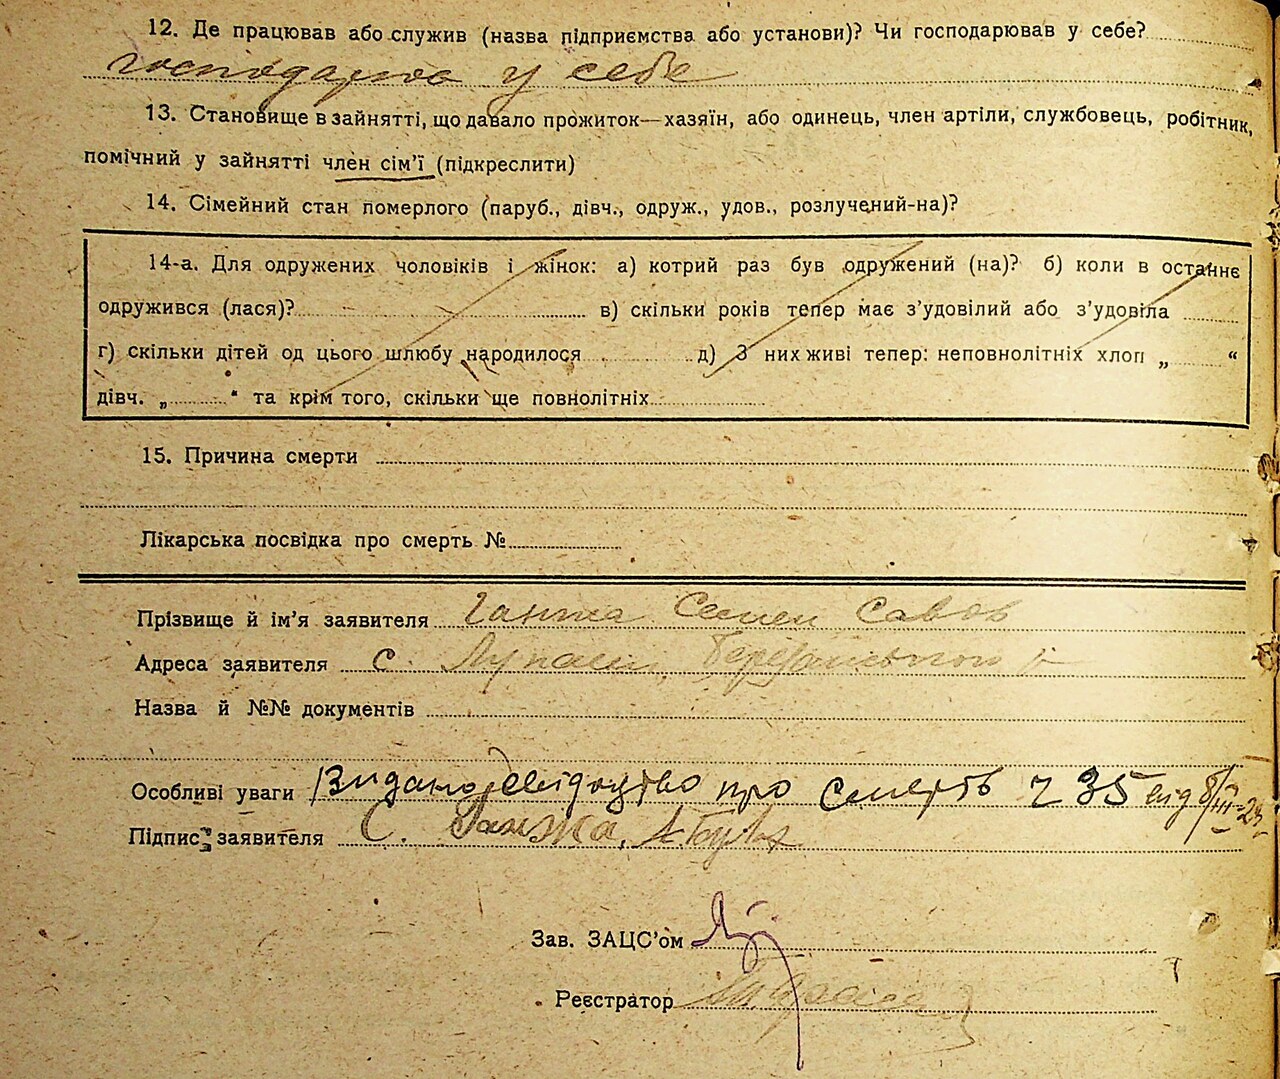 12. Де працював або служив (назва підприємства або установи)? Чи господарював у себе?
господарюв у себе
13. Становище в зайнятті, що давало прожиток—хазяїн, або одинець, член артіли, службовець, робітник,
помічний у зайнятті член сім’ї (підкреслити)
14. Сімейний стан померлого (паруб., дівч., одруж., удов., розлучений-на)?
14-а. Для одружених чоловіків і жінок: а) котрий раз був одружений (на)? б) коли в останнє
одружився (лася)? в) скільки років тепер має з’удовілий або з’удовіла
г) скільки дітей од цього шлюбу народилося д) З них живі тепер: неповнолітніх хлоп „ “
дівч. „ “ та крім того, скільки ще повнолітніх
15. Причина смерти
Лікарська посвідка про смерть №
Прізвище й ім’я заявителя Ганжа Семен Савов
Адреса заявителя с. Лупаси, Березанського р
Назва й №№ документів
Особливі уваги Видано свідоцтво про смерть ч 35 від 8/III-
Підпис заявителя С. Ганжа,
Зав. ЗАЦС’ом
Реєстратор